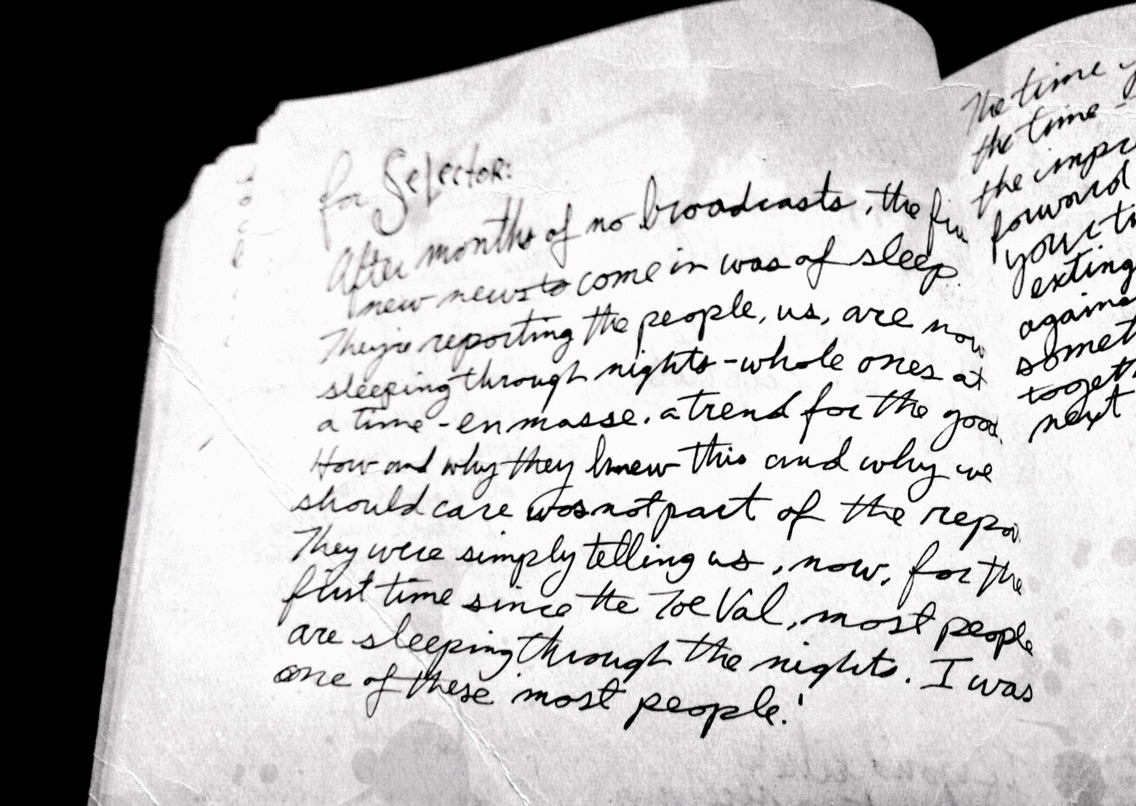 for Selector:
After months of no broadcasts, the fir
new news to come in was of sleep.
They're reporting the people, us, are now
sleeping through nights - whole ones at
a time - en masse. a trend for the good.
How and why they knew this and why we
should care was not part of the repo
They were simply telling us, now, for the
first time since the Zoe Val, most people
are sleeping through the nights. I was
one of these most people!
The time y
the time -
the impr
forward
your
exting
agains
somet
togeth
next